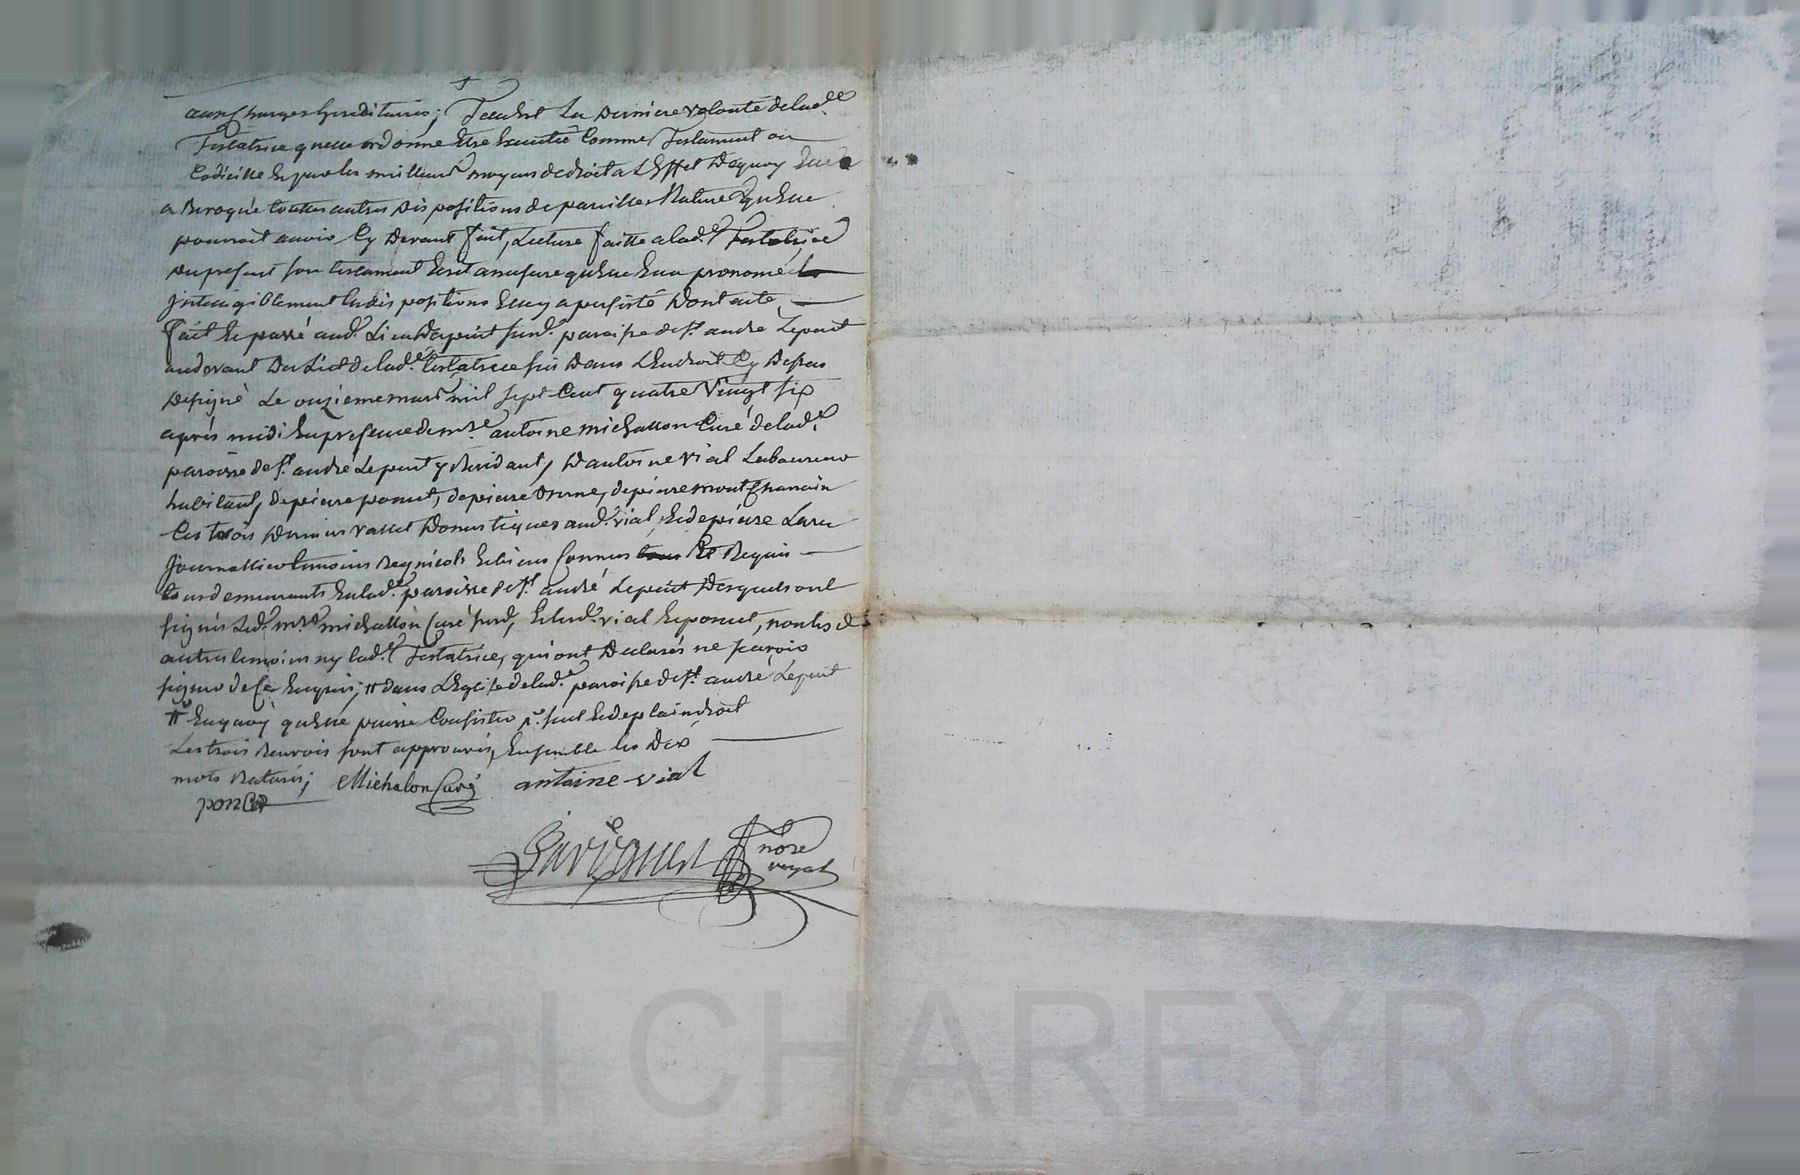 aux Charges hereditaires; Telle est La Derniere volonté de lade
Testatrice quelle ordonne Etre Executée Comme Testament ou
Codicille Et par les meilleurs moyens de droit a L'Effet Dequoy Elle
a Revoqué touttes autres Dispositions de pareilles Nature Qu'Elle
pourroit avoir Cy Devant fait, Lecture faitte a lade Testatrice
Du present son testament Ecrit a mesure qu'Elle En a prononcé
Intelligiblement les dispositions Elle y a persisté Dont acte
fait Et passé aud. Lieu Depeint susd. paroisse de st. andré Lepuit
audevant Du Lict de lade. testatrice sis Dans L'Endroit Cy Dessus
Designé Le onzieme mars mil sept Cent quatre Vingt six
après midi En presence de mre. antoine michallon Curé de lade.
paroisse de st. andré Lepuit y Residant, D'antoine Vial Laboureur
habitant, de pierre poncet, de pierre brune, de pierre montChannin
Ces trois Derniers vallet Domestiques aud. vial, Et de pierre
Journallier temoins Regnicols Et bien Connus Et Requis
tous demeurants En lade. paroisse de st. andré Lepuit Desquels ont
signés Led. mre. michallon Curé susd., Et lesd. vial Et poncet, non les d.
autres temoins ny lade. Testatrice, qui ont Declarés ne sçavoir
signer de Ce Enquis; # dans L'Eglise de lade. paroisse de st. andré Lepuit
# En quoy qu'Elle puisse Consister r. sut Et de plain droit
Les trois Renvois sont approuvés, Ensemble les Dix
mots Raturés; Michalon Curé antoine vial
poncet
nore
royal
Pascal CHAREYRON